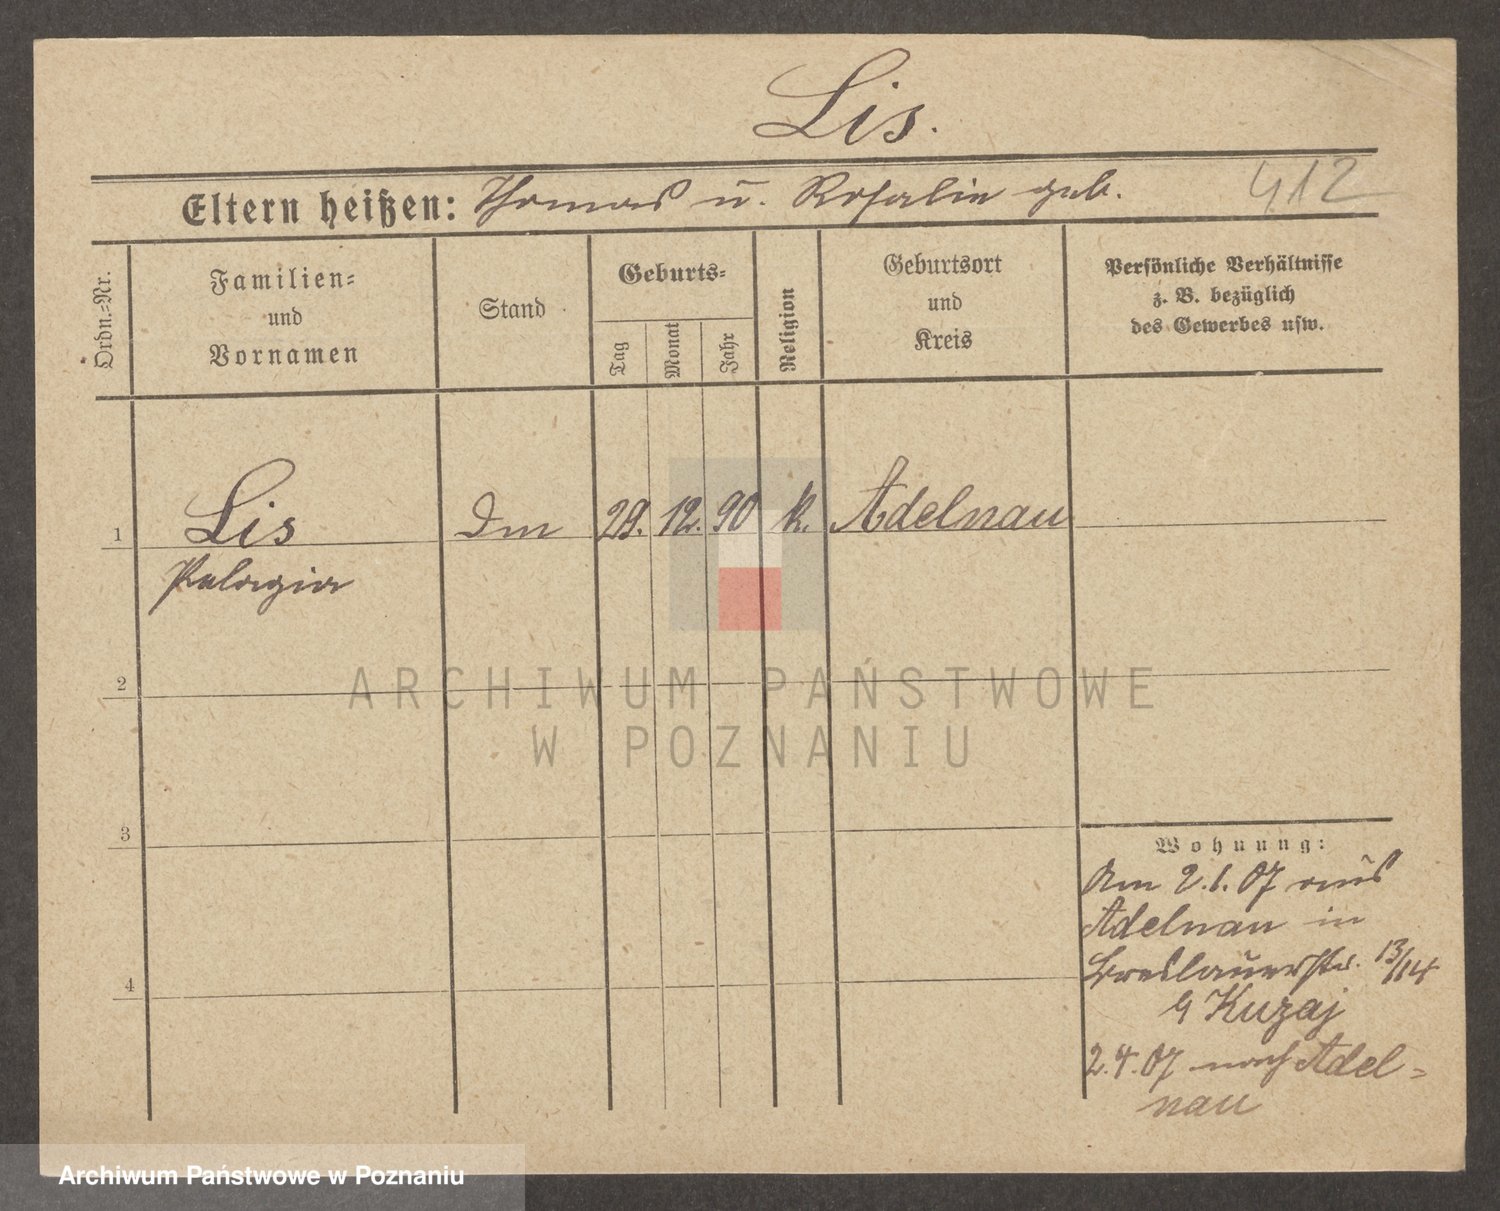 Lis.
Eltern heißen: Thomas u. Rosalie geb.
412
Ordn.-Nr.
Familien-
und
Vornamen
Stand
Geburts-
Tag
Monat
Jahr
Religion
Geburtsort
und
Kreis
Persönliche Verhältnisse
z. B. bezüglich
des Gewerbes usw.
1 Lis Dm 29. 12. 90 k. Adelnau
Pelagia
2
3
4
Wohnung:
Am 2.1.07 aus
Adelnau in
Breslauerstr. 13/14
Kuzaj
2.4.07 nach Adel-
nau
ARCHIWUM PAŃSTWOWE
W POZNANIU
Archiwum Państwowe w Poznaniu